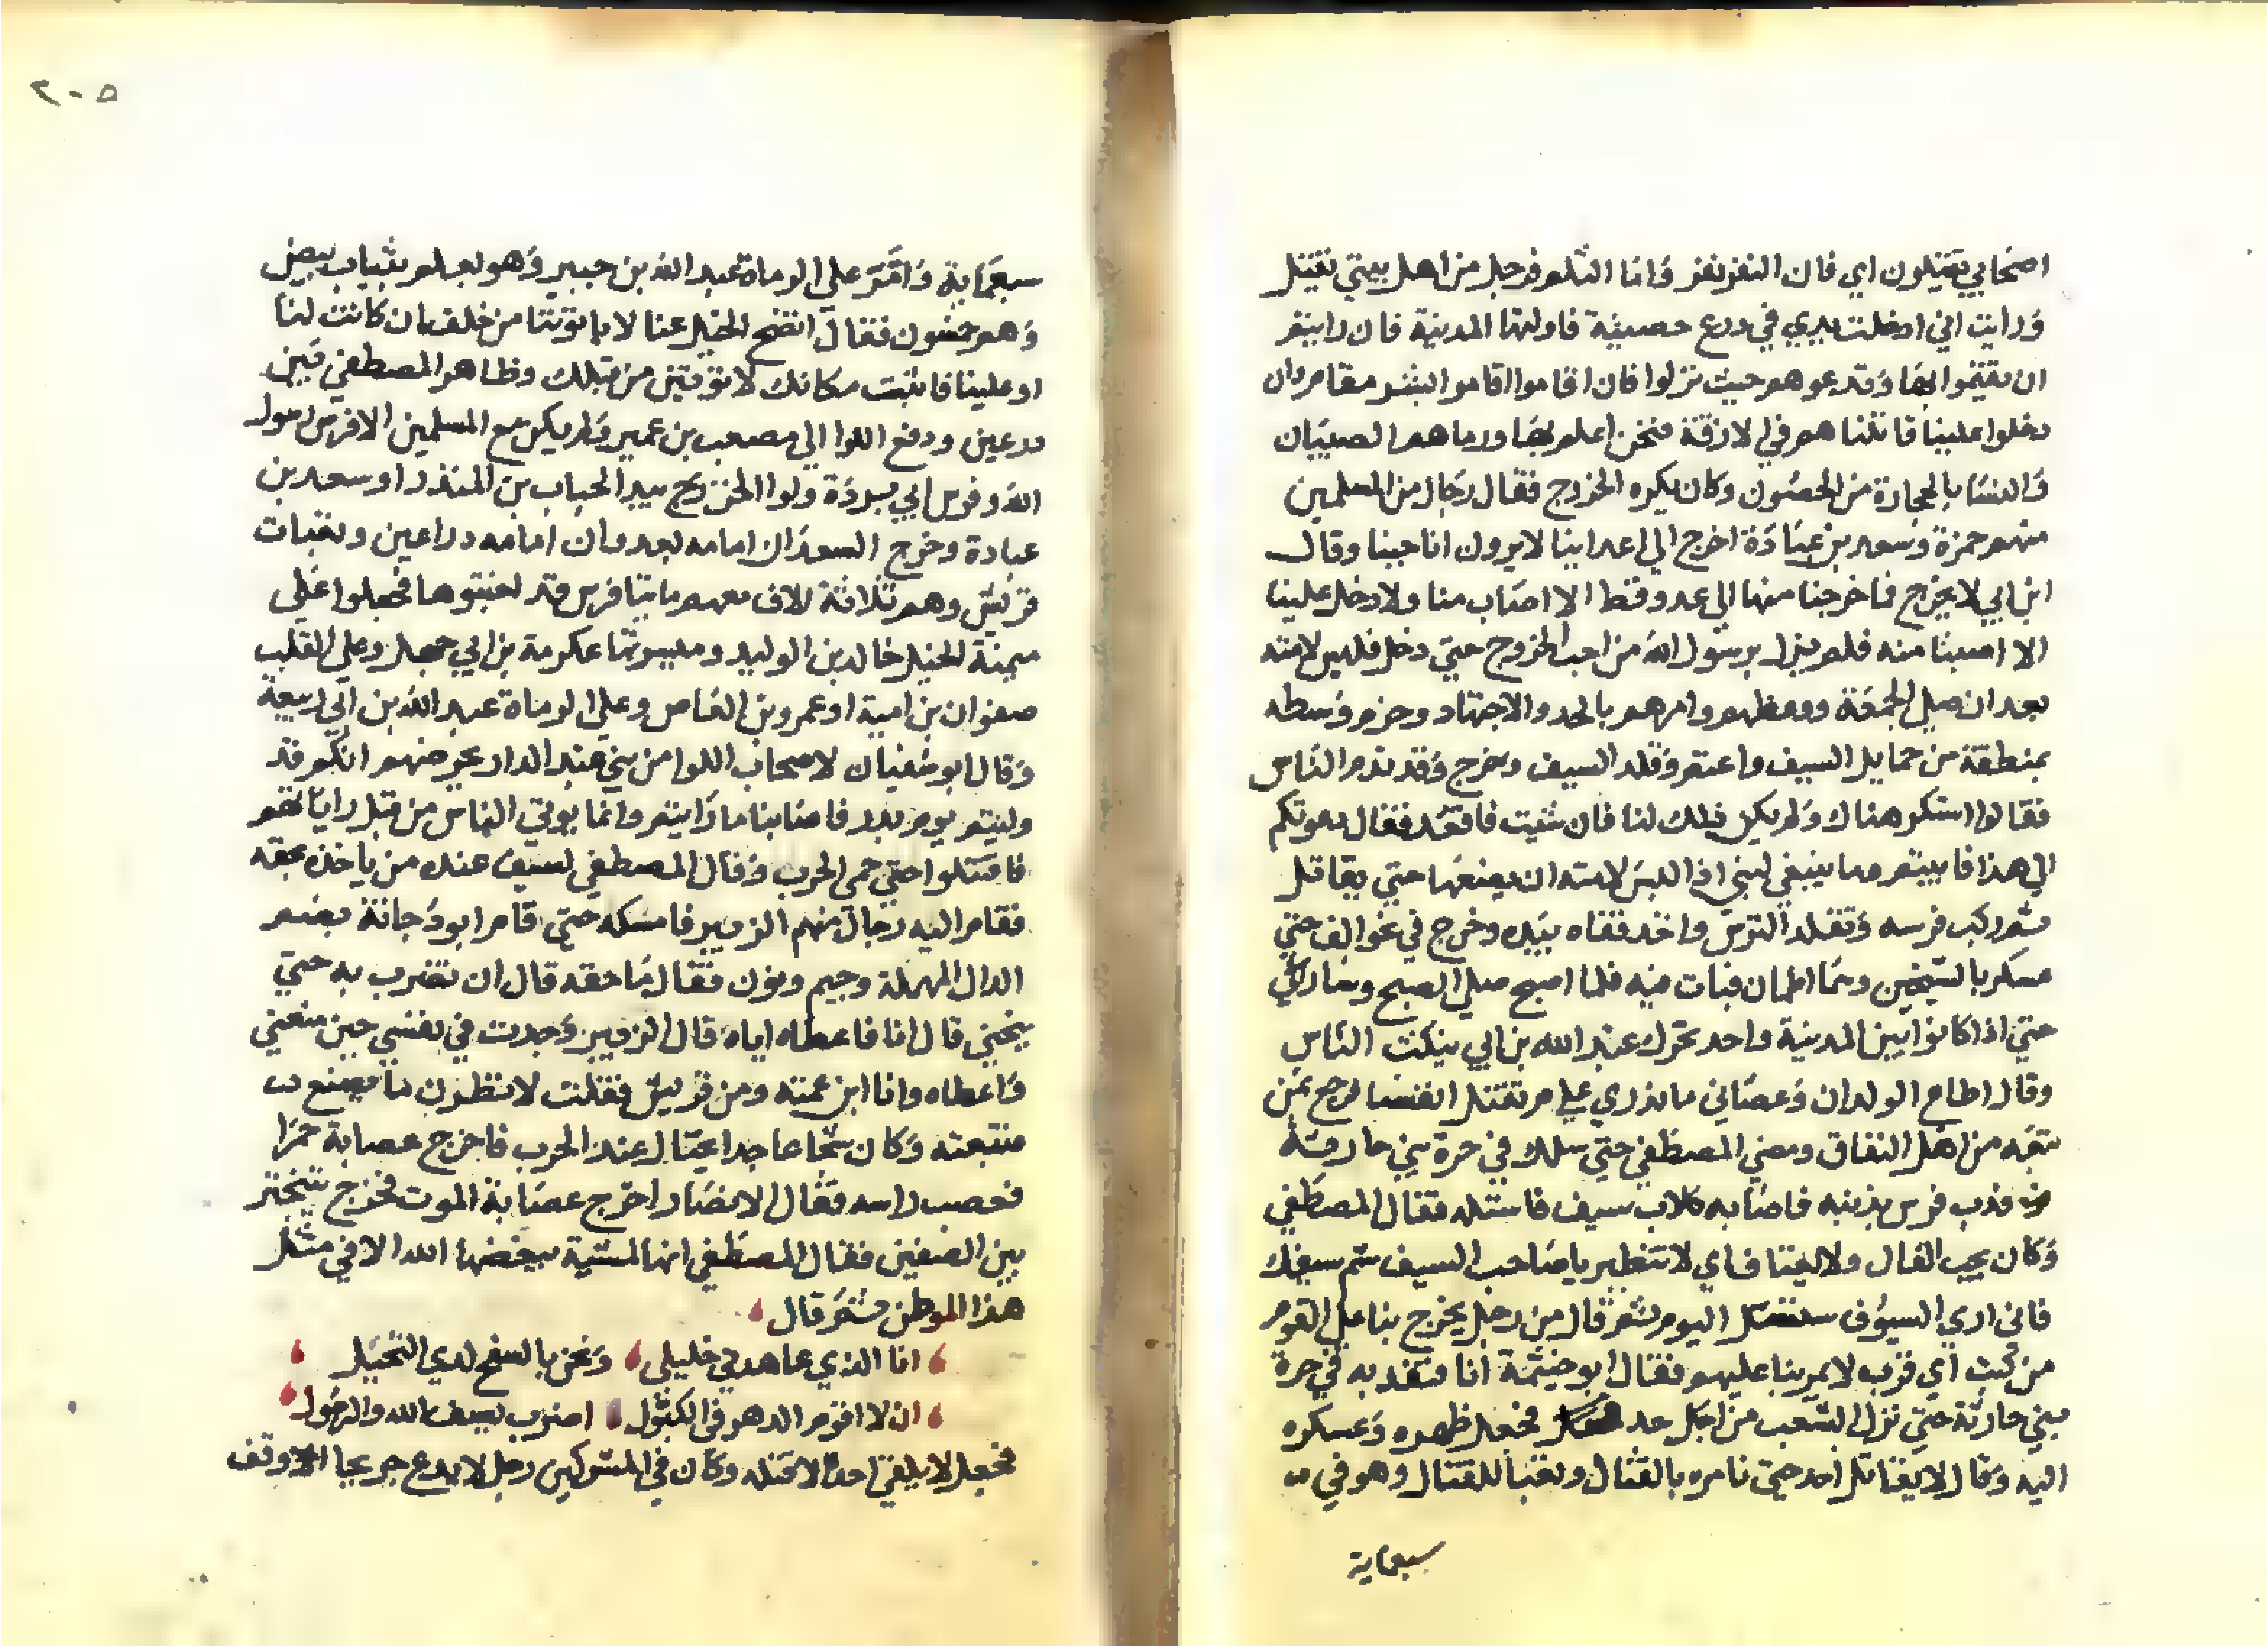 اصحابي يقتلون اي فان النفر نفر واما الثلم فرجل من اهل بيتي يقتل
ورايت اني ادخلت يدي في درع حصينة فاولتها المدينة فان رايتم
ان تقيموا بها وتدعوهم حيث نزلوا فان اقاموا اقاموا البشر مقام وان
دخلوا علينا قاتلناهم في الازقة فنحن اعلم بها ورماهم الصبيان
والنسا بالحجارة من الحصون وكان يكره الخروج فقال رجال من المسلمين
منهم حمزة وسعد بن عبادة اخرج الي اعداينا لا يرون انا جبنا وقال
ابن ابي لا تخرج فما خرجنا منها الي عدو قط الا اصاب منا ولا دخل علينا
الا اصبنا منه فلم يزل برسول الله من احب الخروج حتي دخل فلبس لامته
بعد ان صلي الجمعة ووعظهم وامرهم بالجد والاجتهاد وحزم وسطه
بمنطقة من حمايل السيف واعتم وقلد السيف وخرج وقد ندم الناس
فقالوا استكرهناك ولم يكن ذلك لنا فان شيت فاقعد فقال دعوتكم
الي هذا فابيتم وما ينبغي لنبي اذا لبس لامته ان يضعها حتي يقاتل
ثم ركب فرسه وتقلد الترس واخذ قناه بيده وخرج في نحو الف حتي
عسكر بالشيخين وهما اطمان فبات فيه فلما اصبح صلي الصبح وسار
حتي اذا كانوا بين المدينة واحد تحرك عبد الله بن ابي ينكث الناس
وقال اطاع الولدان وعصاني ما ندري علي م نقتل انفسنا فرجع بمن
تبعه من اهل النفاق ومضي المصطفي حتي سلك في حرة بني حارثة
فذب فرس بذنبه فاصابه كلاب سيف فاستله فقال المصطفي
وكان يحب الفال ولا يعتاف اي لا يتطير يا صاحب السيف شم سيفك
فاني اري السيوف ستسل اليوم ثم قال من رجل يخرج بنا علي القوم
من كثب اي قرب لا يمر بنا عليهم فقال ابو خيثمة انا فنفذ به في حرة
بني حارثة حتي نزل الشعب من احد فجعل ظهره وعسكره
اليه وقال لا يقاتل احد حتي نامره بالقتال وتعبا للقتال وهو في
سبعماية
٢٠٥
سبعماية وامر علي الرماة عبد الله بن جبير وهو معلم بثياب بيض
وهم خمسون فقال انضح الخيل عنا لا ياتوننا من خلف ان كانت لنا
او علينا فاثبت مكانك لا نؤتين من قبلك وظاهر المصطفي بين
درعين ودفع اللوا الي مصعب بن عمير ولم يكن مع المسلمين الا فرس رسول
الله وفرس ابي بردة ولوا الخزرج بيد الحباب بن المنذر او سعد بن
عبادة وخرج السعدان امامه يعدوان امامه دراعين وتعبات
قريش وهم ثلاثة الاف معهم مايتا فرس قد جنبوها فجعلوا علي
ميمنة الخيل خالد بن الوليد وميسرتها عكرمة بن ابي جهل وعلي القلب
صفوان بن امية او عمرو بن العاص وعلي الرماة عبد الله بن ابي ربيعة
وقال ابو سفيان لاصحاب اللوا من بني عبد الدار يحرضهم انكم قد
وليتم يوم بدر فاصابنا ما رايتم وانما يوتي الناس من قبل راياتهم
فاقتتلوا حتي حمي الحرب وقال المصطفي لسيف عنده من ياخذه بحقه
فقام اليه رجال منهم الزبير فامسكه حتي قام ابو دجانة بضم
الدال المهملة وجيم ونون فقال ما حقه قال ان تضرب به حتي
ينحني قال انا فاعطاه اياه قال الزبير وجدت في نفسي حين منعني
واعطاه وانا ابن عمته ومن قريش فقلت لانظرن ما يصنع
فتبعته وكان شجاعا جدا يختال عند الحرب فاخرج عصابة حمرا
فعصب راسه فقال الانصار اخرج عصابة الموت فخرج يتبختر
بين الصفين فقال المصطفي انها لمشية يبغضها الله الا في مثل
هذا الموطن ثم قال
انا الذي عاهدني خليلي ونحن بالسفح لدي النخيل
ان لا اقوم الدهر في الكيول اضرب بسيف الله والرسول
فجعل لا يلقي احدا الا قتله وكان في المشركين رجل لا يدع جريحا الا وقف